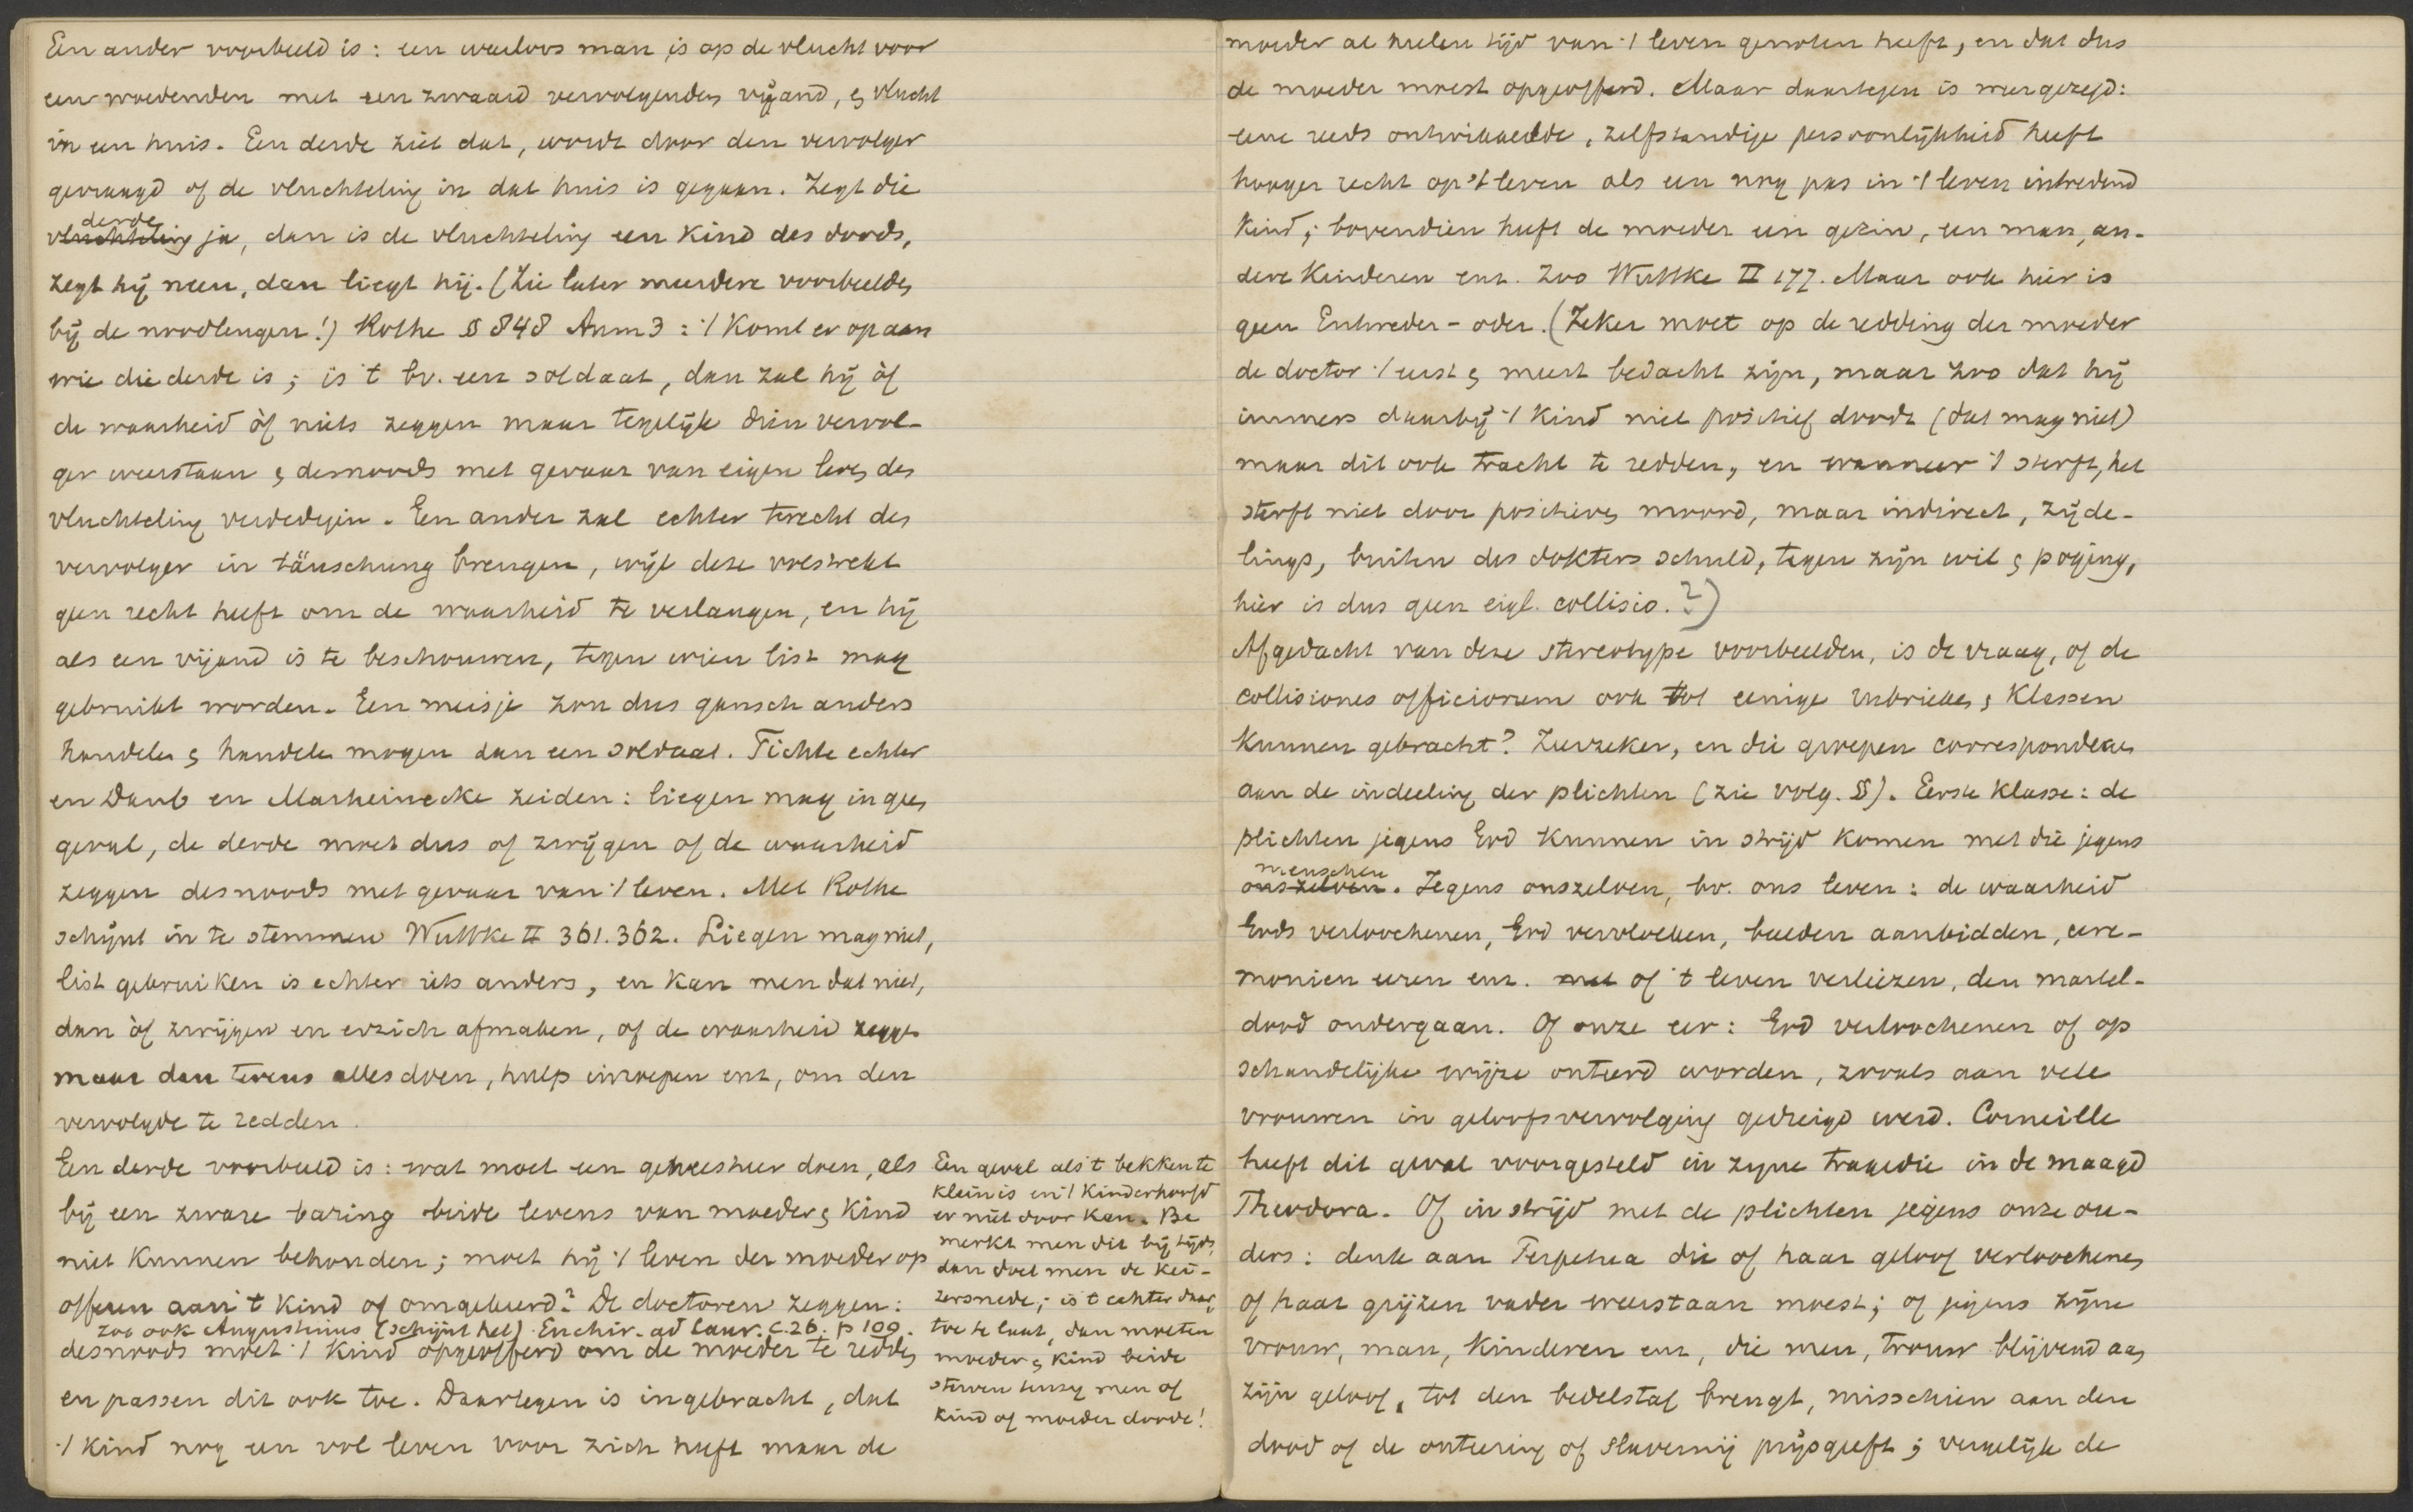 Een ander voorbeeld is: een weerloos man is op de vlucht voor
een woedenden met een zwaard vervolgenden vijand, & vlucht
in een huis. Een derde ziet dat, wordt door den vervolger
gevraagd of de vluchteling in dat huis is gegaan. Zegt die
derde
vluchteling ja, dan is de vluchteling een kind des doods,
zegt hij neen, dan liegt hij. (Zie later meerdere voorbeelden
bij de noodleugen!) Rothe § 848 Anm 3: 't Komt er op aan
wie die derde is; is 't bv. een soldaat, dan zal hij òf
de waarheid òf niets zeggen maar tegelijk dien vervol-
ger weerstaan & desnoods met gevaar van eigen leven des
vluchteling verdedigen. Een ander zal echter terecht des
vervolger in täuschung brengen, wijl deze volstrekt
geen recht heeft om de waarheid te verlangen, en hij
als een vijand is te beschouwen, tegen wien list mag
gebruikt worden. Een meisje zou dus gansch anders
handelen & handelen mogen dan een soldaat. Fichte echter
en Daub en Marheinecke zeiden: liegen mag in geen
geval, de derde moet dus of zwijgen of de waarheid
zeggen desnoods met gevaar van 't leven. Met Rothe
schijnt in te stemmen Wuttke II 361.362. Liegen mag niet,
list gebruiken is echter iets anders, en kan men dat niet,
dan òf zwijgen en er zich afmaken, of de waarheid zeggen
maar dan tevens alles doen, hulp inroepen enz, om den
vervolgde te redden.
Een derde voorbeeld is: wat moet een geneesheer doen, als
bij een zware baring beide levens van moeder & kind
niet kunnen behouden; moet hij 't leven der moeder op
offeren aan 't kind of omgekeerd? De doctoren zeggen:
zoo ook Augustinus (schijnt het) Enchir. ad Laur. c. 26. p 109.
desnoods moet 't kind opgeofferd om de moeder te redden
en passen dit ook toe. Daartegen is ingebracht, dat
't kind nog een vol leven voor zich heeft maar de
Een geval als 't bekken te
klein is en 't kinderhoofd
er niet door kan. Be
merkt men dit bij tijds,
dan doet men de kei-
zersnede; is 't echter daar
toe te laat, dan moeten
moeder & kind beide
sterven tenzij men of
kind of moeder doode!
moeder al heelen tijd van 't leven genoten heeft, en dat dus
de moeder moest opgeofferd. Maar daartegen is weer gezegd:
eene reeds ontwikkelde, zelfstandige persoonlijkheid heeft
hooger recht op 't leven als een nog pas in 't leven intredend
kind; bovendien heeft de moeder een gezin, een man, an-
dere kinderen enz. Zoo Wuttke II 177. Maar ook hier is
geen Entweder-oder. (Zeker moet op de redding der moeder
de doctor 't eerst & meest bedacht zijn, maar zoo dat hij
immers daarbij 't kind niet positief doodt (dat mag niet)
maar dit ook tracht te redden, en wanneer 't sterft, het
sterft niet door positieven moord, maar indirect, zijde-
lings, buiten des dokters schuld, tegen zijn wil & poging,
hier is dus geen eigl. collisio.?)
Afgedacht van deze stereotype voorbeelden, is de vraag, of de
collisiones officiorum ook tot eenige rubrieken & klassen
kunnen gebracht? Zeer zeker, en die groepen correspondeeren
aan de indeeling der plichten (zie volg. §). Eerste klasse: de
plichten jegens God kunnen in strijd komen met die jegens
menschen
onszelven. Jegens onszelven, bv. ons leven: de waarheid
Gods verloochenen, God vervloeken, beelden aanbidden, cere-
monien eeren enz. met of 't leven verliezen, den martel-
dood ondergaan. Of onze eer: God verloochenen of op
schandelijke wijze onteerd worden, zooals aan vele
vrouwen in geloofsvervolging gedreigd werd. Corneille
heeft dit geval voorgesteld in zijne tragedie in de maagd
Theodora. Of in strijd met de plichten jegens onze ou-
ders: denk aan Perpetua die of haar geloof verloochenen
of haar grijzen vader weerstaan moest; of jegens zijne
vrouw, man, kinderen enz, die men, trouw blijvend aan
zijn geloof, tot den bedelstaf brengt, misschien aan den
dood of de onteering of slavernij prijsgeeft; vergelijk de